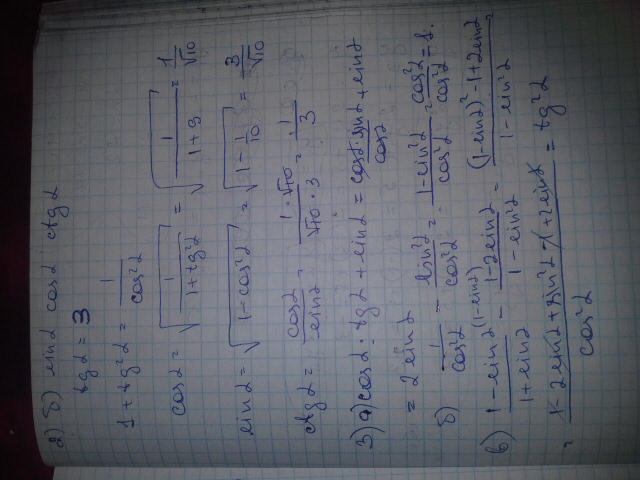 2) б) sin α cos α ctg α
tg α = 3
1 + tg²α = 1/cos²α
cos α = √(1/(1+tg²α)) = √(1/(1+9)) = 1/√10
sin α = √(1-cos²α) = √(1 - 1/10) = 3/√10
ctg α = cos α/sin α = (1·√10)/(√10·3) = 1/3
3) а) cos α · tg α + sin α = (cos α · sin α)/cos α + sin α
= 2 sin α
б) 1/cos²α - sin²α/cos²α = (1-sin²α)/cos²α = cos²α/cos²α = 1.
в) (1-sin α)^(1-sin α)/(1+sin α) - (1-2sin α)/(1-sin²α) = ((1-sin α)² - 1+2sin α)/(1-sin²α)
= (1-2sin α+sin²α-1+2sin α)/cos²α = tg²α